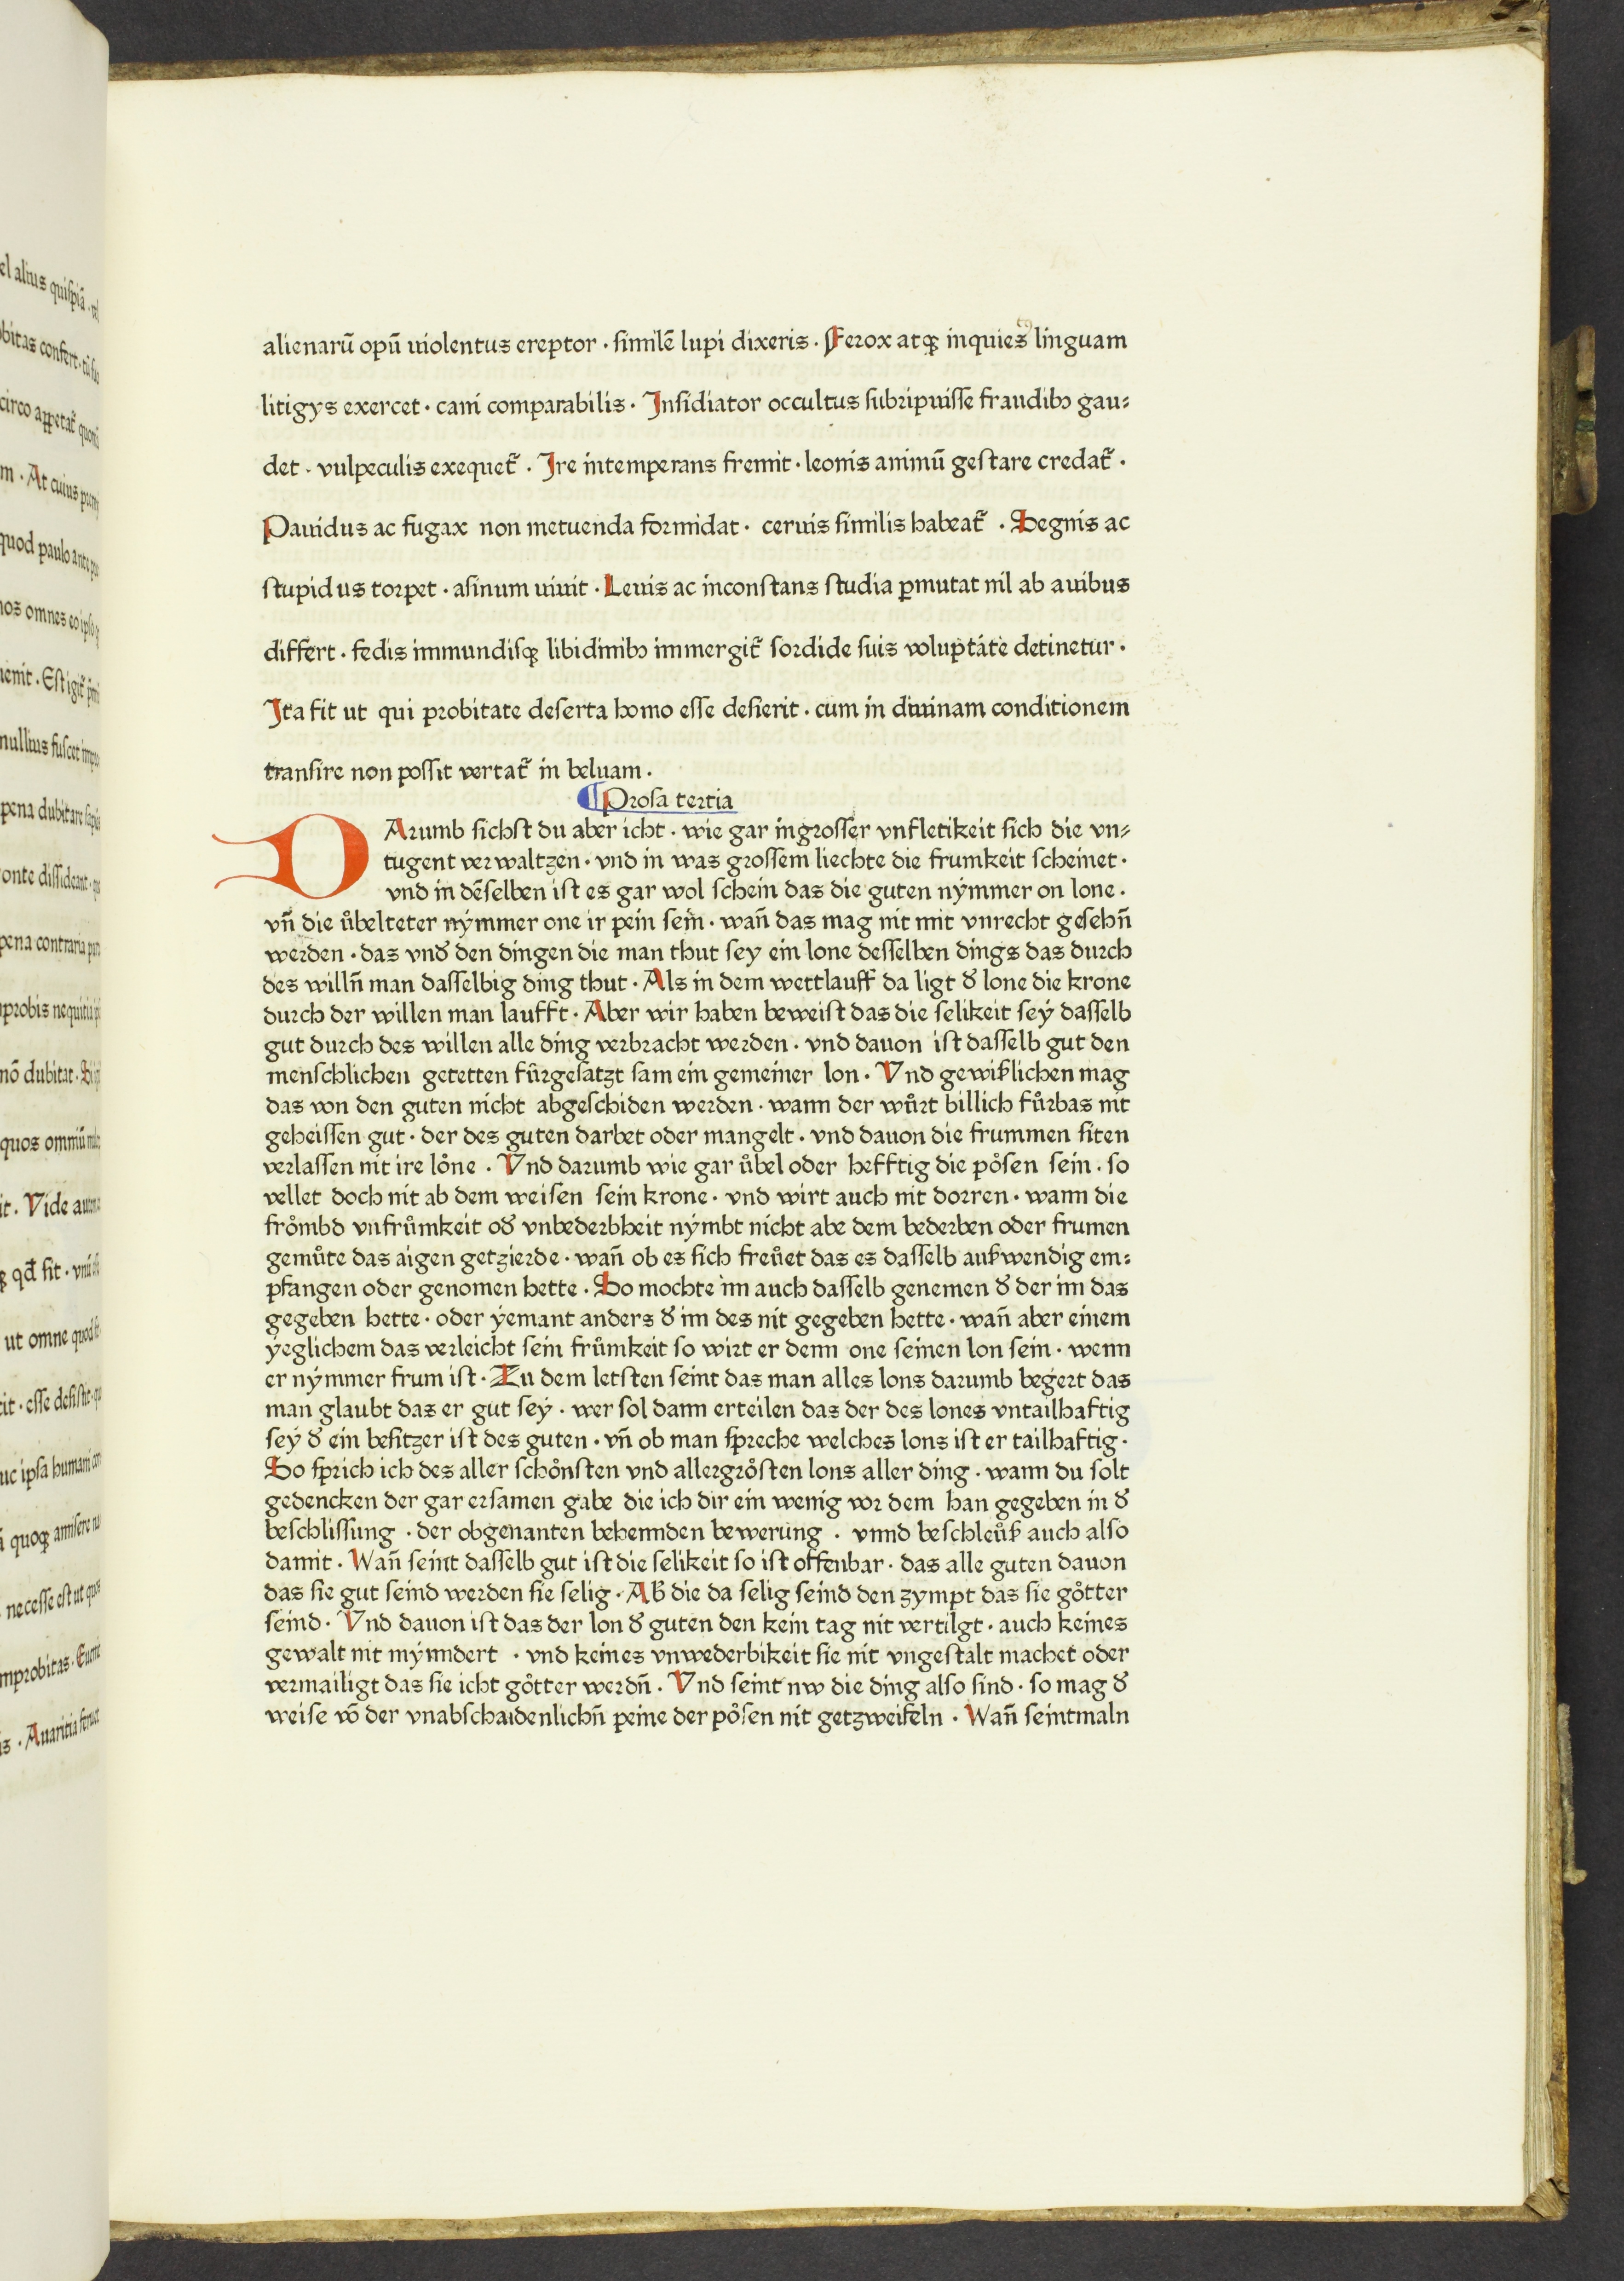 alienarū opū uiolentus ereptor · similē lupi dixeris · Ferox atqꝫ inquies linguam
litigys exercet · cani comparabilis · Insidiator occultus subripuisse fraudibꝰ gau⸗
det · vulpeculis exequet᷑ · Ire intemperans fremit · leonis animū gestare credat᷑ ·
Pauidus ac fugax non metuenda formidat · ceruis similis habeat᷑ · Segnis ac
stupidus torpet · asinum uiuit · Leuis ac inconstans studia ꝑmutat nil ab auibus
differt · fedis immundisqꝫ libidinibꝰ immergit᷑ sordide suis voluptate detinetur ·
Ita fit ut qui probitate deserta homo esse desierit · cum in diuinam conditionem
transire non possit vertat᷑ in beluam ·
¶Prosa tertia
DArumb sichst du aber icht · wie gar ingrosser vnfletikeit sich die vn⸗
tugent verwaltzen · vnd in was grossem liechte die frumkeit scheinet ·
vnd in dēselben ist es gar wol schein das die guten nymmer on lone ·
vn̄ die uͦbelteter nymmer one ir pein sein · wan̄ das mag nit mit vnrecht gesehn̄
werden · das vnd̕ den dingen die man thut sey ein lone desselben dings das durch
des willn̄ man dasselbig ding thut · Als in dem wettlauff da ligt d̕ lone die krone
durch der willen man laufft · Aber wir haben beweist das die selikeit sey dasselb
gut durch des willen alle ding verbracht werden · vnd dauon ist dasselb gut den
menschlichen getetten fuͦrgesatzt sam ein gemeiner lon · Vnd gewißlichen mag
das von den guten nicht abgeschiden werden · wann der wuͦrt billich fuͦrbas nit
geheissen gut · der des guten darbet oder mangelt · vnd dauon die frummen siten
verlassen nit ire loͤne · Vnd darumb wie gar uͦbel oder hefftig die poͤsen sein · so
vellet doch nit ab dem weisen sein krone · vnd wirt auch nit dorren · wann die
froͤmbd vnfruͦmkeit od̕ vnbederbheit nymbt nicht abe dem bederben oder frumen
gemuͦte das aigen getzierde · wan̄ ob es sich freuͦet das es dasselb außwendig em⸗
pfangen oder genomen hette · So mochte im auch dasselb genemen d̕ der im das
gegeben hette · oder yemant anders d̕ im des nit gegeben hette · wan̄ aber einem
yeglichem das verleicht sein fruͦmkeit so wirt er denn one seinen lon sein · wenn
er nymmer frum ist · Zu dem letsten seint das man alles lons darumb begert das
man glaubt das er gut sey · wer sol dann erteilen das der des lones vntailhaftig
sey d̕ ein besitzer ist des guten · vn̄ ob man spreche welches lons ist er tailhaftig ·
So sprich ich des aller schoͤnsten vnd allergroͤsten lons aller ding · wann du solt
gedencken der gar ersamen gabe die ich dir ein wenig vor dem han gegeben in d̕
beschlissung · der obgenanten behennden bewerung · vnnd beschleuͦß auch also
damit · Wan̄ seint dasselb gut ist die selikeit so ist offenbar · das alle guten dauon
das sie gut seind werden sie selig · Aḃ die da selig seind den zympt das sie goͤtter
seind · Vnd dauon ist das der lon d̕ guten den kein tag nit vertilgt · auch keines
gewalt nit mynndert · vnd keines vnwederbikeit sie nit vngestalt machet oder
vermailigt das sie icht goͤtter werdn̄ · Vnd seint nw die ding also sind · so mag d̕
weise vō der vnabschaidenlichn̄ peine der poͤsen nit getzweifeln · Wan̄ seintmaln